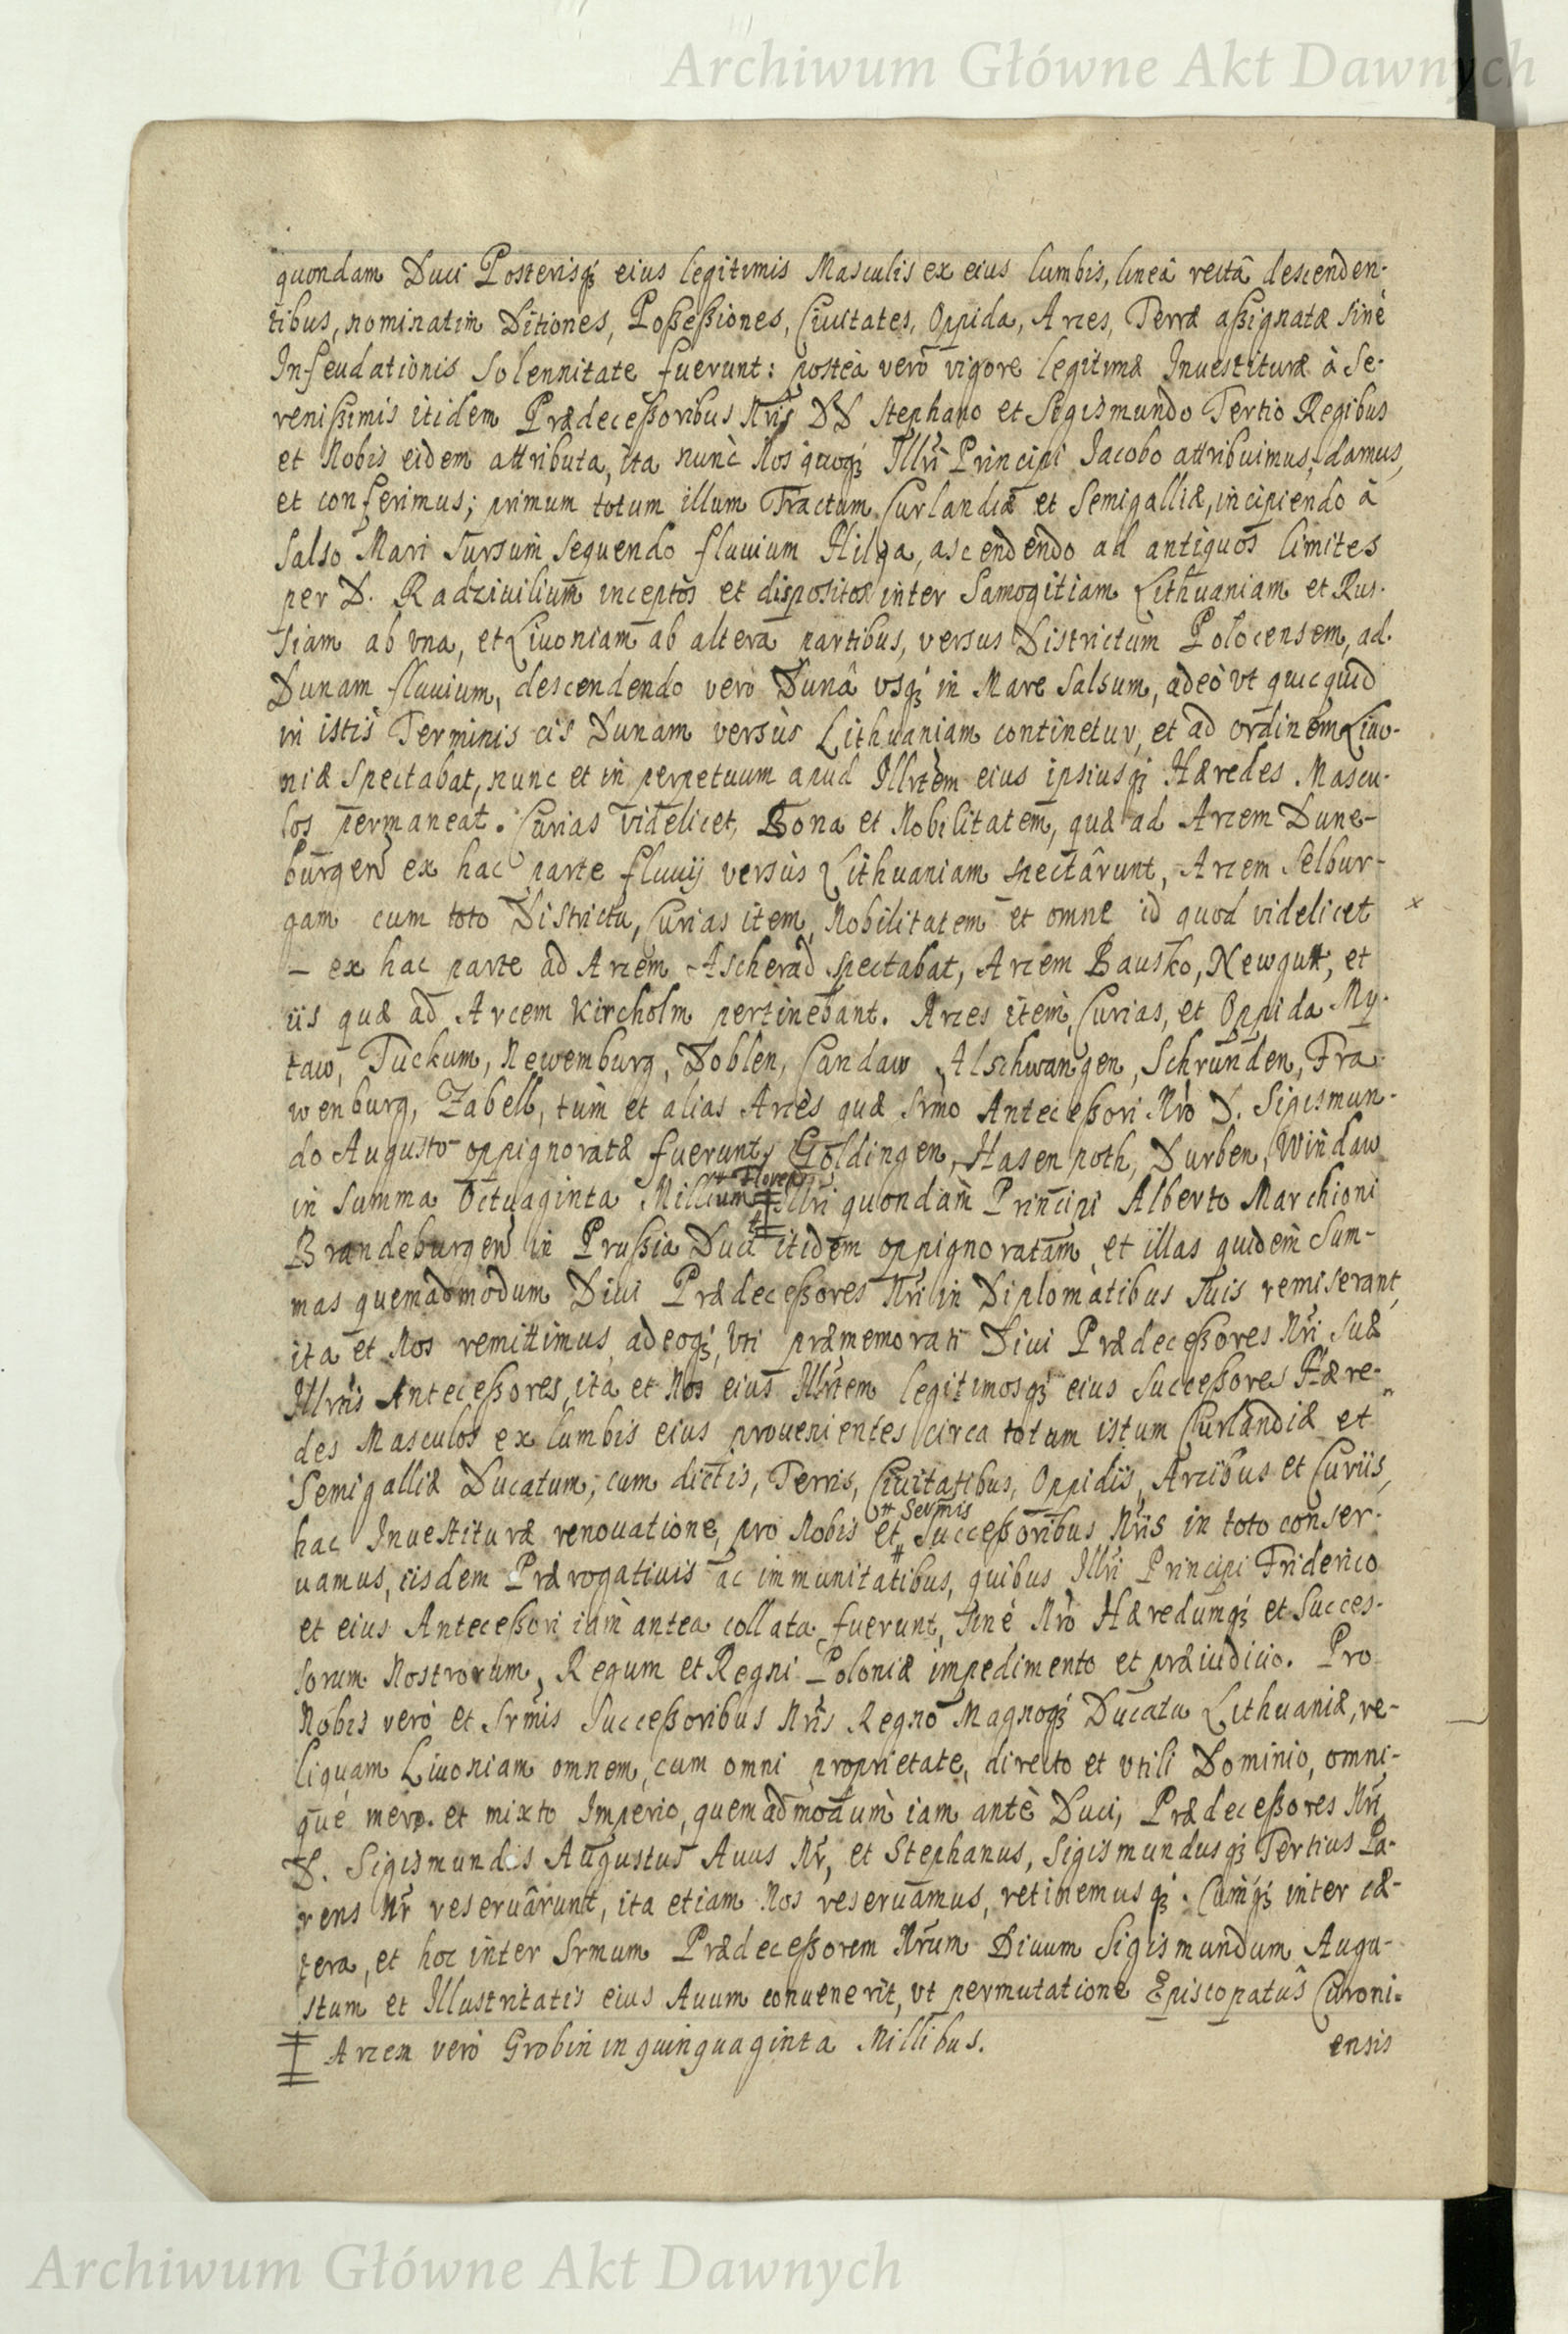 Archiwum Główne Akt Dawnych
quondam Duci Posterisq́ꝫ eius legitimis Masculis ex eius lumbis, lineâ rectâ descenden-
tibus, nominatim Ditiones, Poßeßiones, Ciuitates, Oppida, Arces, Terræ aßignatæ sine
Infeudationis Solennitate fuerunt: posteà verò vigore legitimæ Inuestituræ à Se-
renißimis itidem Prædeceßoribus Nris DD Stephano et Sigismundo Tertio Regibus
et Nobis eidem attributa, ita nunc Nos quoq́ꝫ Illri Principi Iacobo attribuimus, damus,
et conferimus; primum totum illum Tractum Curlandiæ et Semigalliæ, incipiendo à
Salso Mari sursum sequendo fluuium Hilga, ascendendo ad antiquos limites
per D. Radziuilium inceptos et dispositos inter Samogitiam Lithuaniam et Rus-
siam ab vna, et Liuoniam ab altera partibus, versus Districtum Polocensem, ad
Dunam fluuium, descendendo verò Dunâ vsq́ꝫ in Mare Salsum, adeò vt quicquid
in istis Terminis cis Dunam versùs Lithuaniam continetur, et ad ordinem Liuo-
niæ spectabat, nunc et in perpetuum apud Illrtem eius ipsiusq́ꝫ Hæredes Mascu-
los permaneat. Curias videlicet, Bona et Nobilitatem, quæ ad Arcem Dune-
burgen ex hac parte fluuij versùs Lithuaniam spectârunt, Arcem Selbur-
gam cum toto Districtu, Curias item, Nobilitatem et omne id quod videlicet
– ex hac parte ad Arcem Ascherad spectabat, Arcem Bausko, Newgutt, et
iis quæ ad Arcem Kircholm pertinebant. Arces item, Curias, et Oppida My-
taw, Tuckum, Newemburg, Doblen, Candaw, Alschwangen, Schrunden, Fra-
wenburg, Zabell, tùm et alias Arces quæ Srmo Anteceßori Nro D. Sigismun-
do Augusto oppignoratæ fuerunt, Goldingen, Hasenpoth, Durben, Windaw
# Floren
in summa Octuaginta Millium ‡ Illri quondam Principi Alberto Marchioni
Brandeburgen in Prußia Duci itidem oppignoratam, et illas quidem Sum-
mas quemadmodum Diui Prædeceßores Nri in Diplomatibus suis remiserant,
ita et Nos remittimus, adeoq́ꝫ, vti præmemorati Diui Prædeceßores Nri, Suæ
Illrtis Anteceßores, ita et Nos eius Illrtem legitimosq́ꝫ eius Succeßores Hære-
des Masculos ex lumbis eius prouenientes circa totum istum Curlandiæ et
Semigalliæ Ducatum, cum dictis, Terris, Ciuitatibus, Oppidis, Arcibus et Curiis,
# Sermis
hac Inuestituræ renouatione, pro Nobis et # Succeßoribus Nris in toto conser-
uamus, iisdem Prærogatiuis ac immunitatibus, quibus Illri Principi Friderico
et eius Anteceßori iam antea collata fuerunt, sine Nro Hæredumq́ꝫ et Succes-
sorum Nostrorum, Regum et Regni Poloniæ impedimento et præiudicio. Pro
Nobis verò et Srmis Succeßoribus Nris Regno Magnoq́ꝫ Ducatu Lithuaniæ, re-
liquam Liuoniam omnem, cum omni proprietate, directo et vtili Dominio, omni-
que mero et mixto Imperio, quemadmodum iam antè Duci, Prædeceßores Nri
D. Sigismundus Augustus Auus Nr, et Stephanus, Sigismundusq́ꝫ Tertius Pa-
rens Nr reseruârunt, ita etiam Nos reseruamus, retinemusq́ꝫ. Cumq́ꝫ inter cæ-
tera, et hoc inter Srmum Prædeceßorem Nrum Diuum Sigismundum Augu-
stum et Illustritatis eius Auum conuenerit, vt permutatione Episcopatûs Curoni-
‡ Arcem verò Grobin in quinquaginta Millibus.
ensis
Archiwum Główne Akt Dawnych